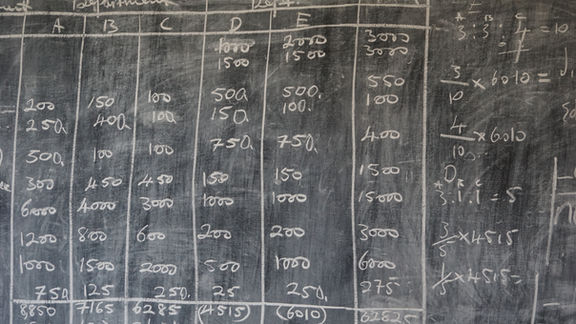 Department Dept.
A B C D E
1000 2000 3000
1500 1500 3000
500 500 550
200 150 100 150 100 100
250 400 100
750 750 400
500 100 100
300 450 450 150 150 1500
6000 4000 3000 1000 1000 15000
1200 800 600 200 200 3000
1000 1500 2000 500 1000 6000
750 125 250 25 250 275
8850 7165 6285 (4515) (6010) 62825
A B C
3:3:4 = 10
3/10 × 6010 =
4/10 × 6010
D
A B C
3:1:1 = 5
3/5 × 4515
1/5 × 4515 =